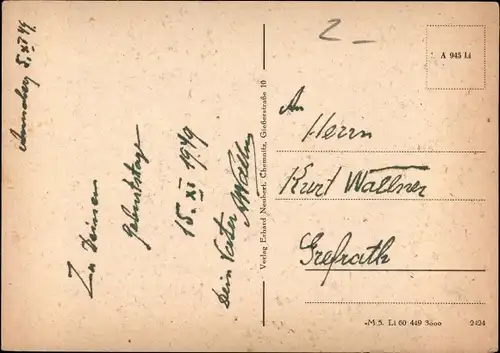 Annaberg 5. XI 49
Zu Deinem
Geburtstage
15. XI 1949
Dein Vater
Verlag Erhard Neubert, Chemnitz, Gießerstraße 10
2
A 945 Li
An
Herrn
Kurt Wallner
Grefrath
M. S. Li 60 449 3000
2424